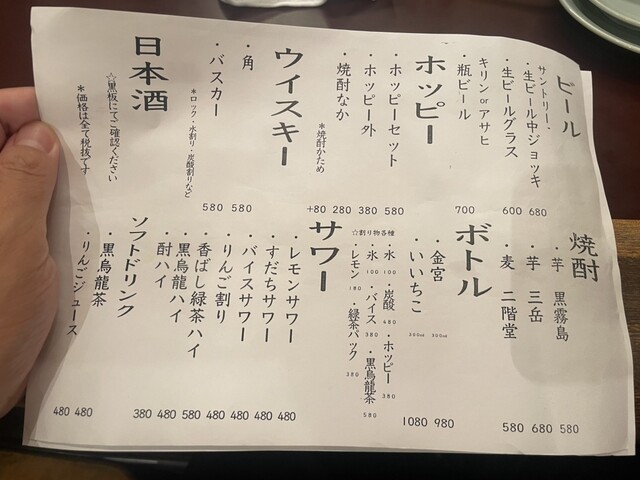 ビール
サントリー、
・生ビール中ジョッキ 680
・生ビールグラス 600
キリン or アサヒ
・瓶ビール 700
ホッピー
・ホッピーセット 580
・ホッピー外 380
・焼酎なか 280
*焼酎かため +80
ウイスキー
・角 580
・バスカー 580
*ロック・水割り・炭酸割りなど
日本酒
☆黒板にてご確認ください
*価格は全て税抜です
焼酎
・芋 黒霧島 580
・芋 三岳 680
・麦 二階堂 580
ボトル
・金宮 980
・いいちこ 1080
☆割り物各種
・水 100 ・炭酸 480 ・ホッピー 380
・氷 100 ・バイス 380 ・黒烏龍茶 580
・レモン 180 ・緑茶パック 380
サワー
・レモンサワー 480
・すだちサワー 480
・バイスサワー 480
・りんご割り 480
・香ばし緑茶ハイ 580
・黒烏龍ハイ 480
・酎ハイ 380
ソフトドリンク
・黒烏龍茶 480
・りんごジュース 480